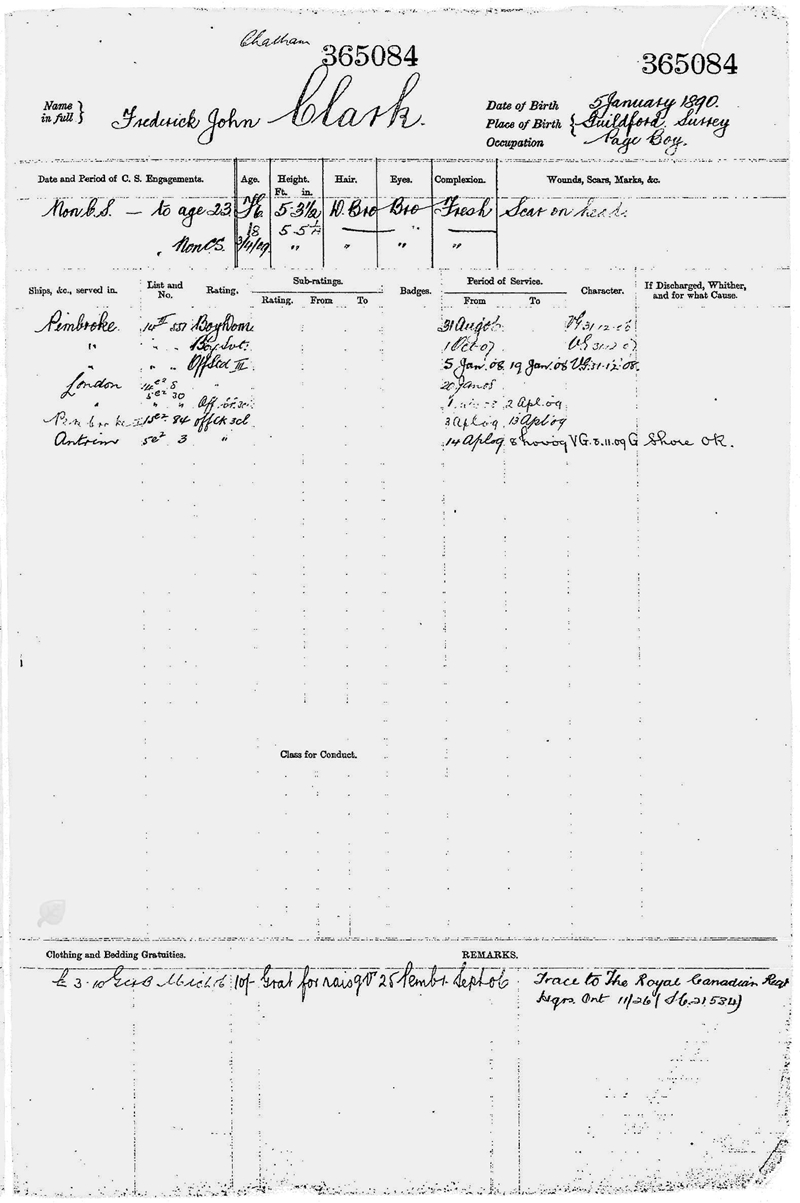 Chatham
365084 365084
Name in full } Frederick John Clark.
Date of Birth 5 January 1890.
Place of Birth { Guildford, Surrey
Occupation Page Boy.
Date and Period of C. S. Engagements. Age. Height. Hair. Eyes. Complexion. Wounds, Scars, Marks, &c.
Ft. in.
Non C.S. — to age 23 5 3½ D. Bro Bro Fresh Scar on head.
18 5 5½ — " —
Non C.S. " " " "
Ships, &c., served in. List and No. Rating. Sub-ratings. Badges. Period of Service. Character. If Discharged, Whither, and for what Cause.
Rating. From To From To
Pembroke. 14 II Boy Dom. 31 Aug 06 VG 31.12.06
" " " Boy Svt. 1 Oct 07 VG 31.12.07
" " " Off Std III 5 Jan 08 19 Jan 08 VG 31.12.08.
London 5 " 20 Jan 08
5 30
" " 2 Apl 09
Pembroke I 15 84 off Ck 3cl 3 Apl 09 13 Apl 09
Antrim 5 3 " 14 Apl 09 8 Nov 09 VG. 8.11.09 G Shore OK.
Class for Conduct.
Clothing and Bedding Gratuities. REMARKS.
£ 3. 10 10/- Grat for 25 Pembr. Sept 06 Trace to The Royal Canadian Regt
Hqrs. Ont 11/26